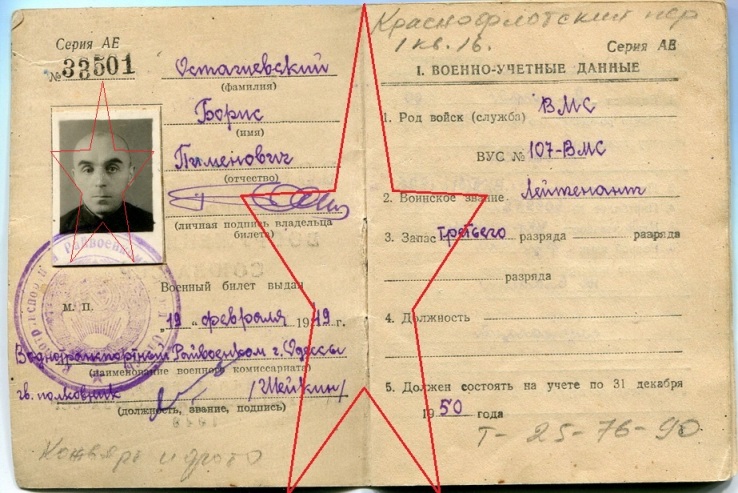 Серия АЕ
№ 33501
Остагиевский
(фамилия)
Борис
(имя)
Пименович
(отчество)
(личная подпись владельца
билета)
Военный билет выдан
"19" февраля 1949 г.
М. П.
Воднотранспортным Райвоенком г. Одессы
(наименование военного комиссариата)
гв. полковник /Шейкин/
(должность, звание, подпись)
Краснофлотский пер
1 кв. 16.
Серия АВ
I. ВОЕННО-УЧЕТНЫЕ ДАННЫЕ
1. Род войск (служба) ВМС
ВУС № 107-ВМС
2. Воинское звание Лейтенант
3. Запас третьего разряда разряда
разряда
4. Должность
5. Должен состоять на учете по 31 декабря
1950 года
Т- 25-76-90